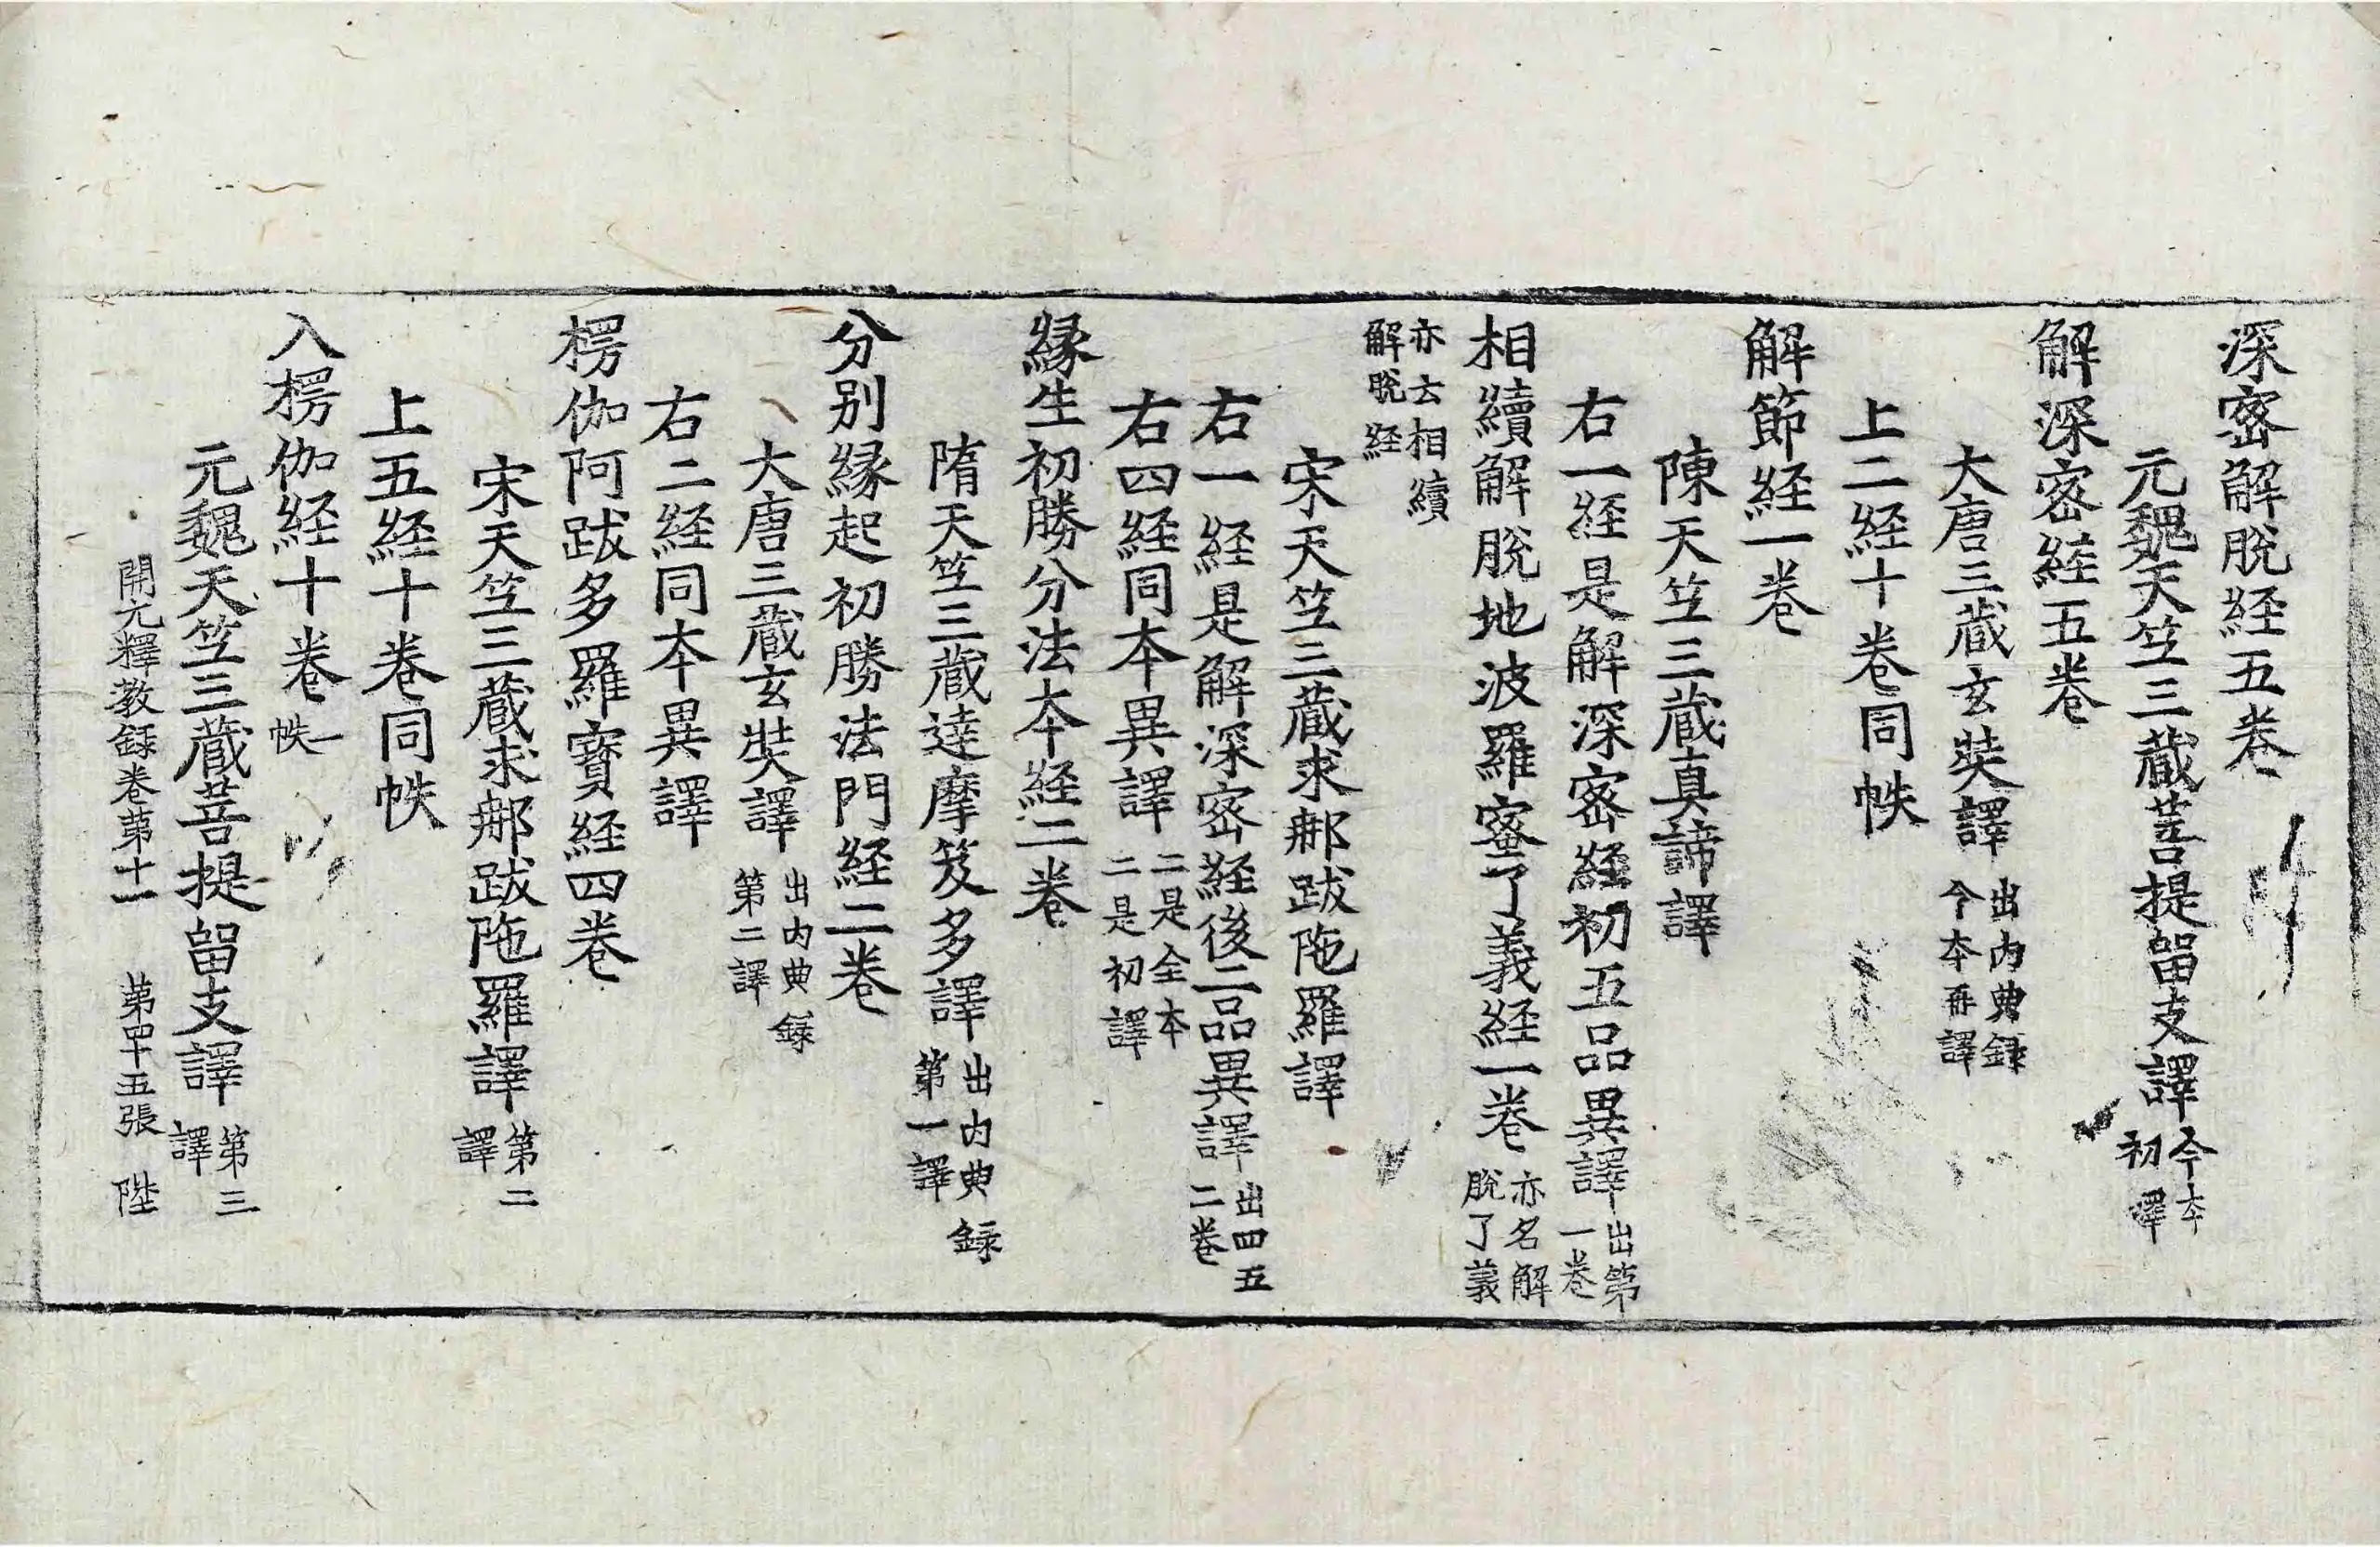 深密解脫経五卷
元魏天竺三蔵菩提留支譯 今本初譯
解深密経五卷
大唐三蔵玄奘譯 出内典録今本再譯
上二経十卷同帙
解節経一卷
陳天竺三蔵真諦譯
右一経是解深密経初五品異譯 出第一卷
相續解脫地波羅蜜了義経一卷 亦名解脫了義
亦云相續解脫経
宋天竺三蔵求那跋陁羅譯
右一経是解深密経後二品異譯 出四五二卷
右四経同本異譯 二是全本二是初譯
縁生初勝分法本経二卷
隋天竺三蔵達摩笈多譯 出内典録第一譯
分别縁起初勝法門経二卷
大唐三蔵玄奘譯 出内典録第二譯
右二経同本異譯
楞伽阿跋多羅寶経四卷
宋天竺三蔵求那跋陁羅譯 第二譯
上五経十卷同帙
入楞伽経十卷 一帙
元魏天竺三蔵菩提留支譯 第三譯
開元釋教録卷第十一 第四十五張 陛